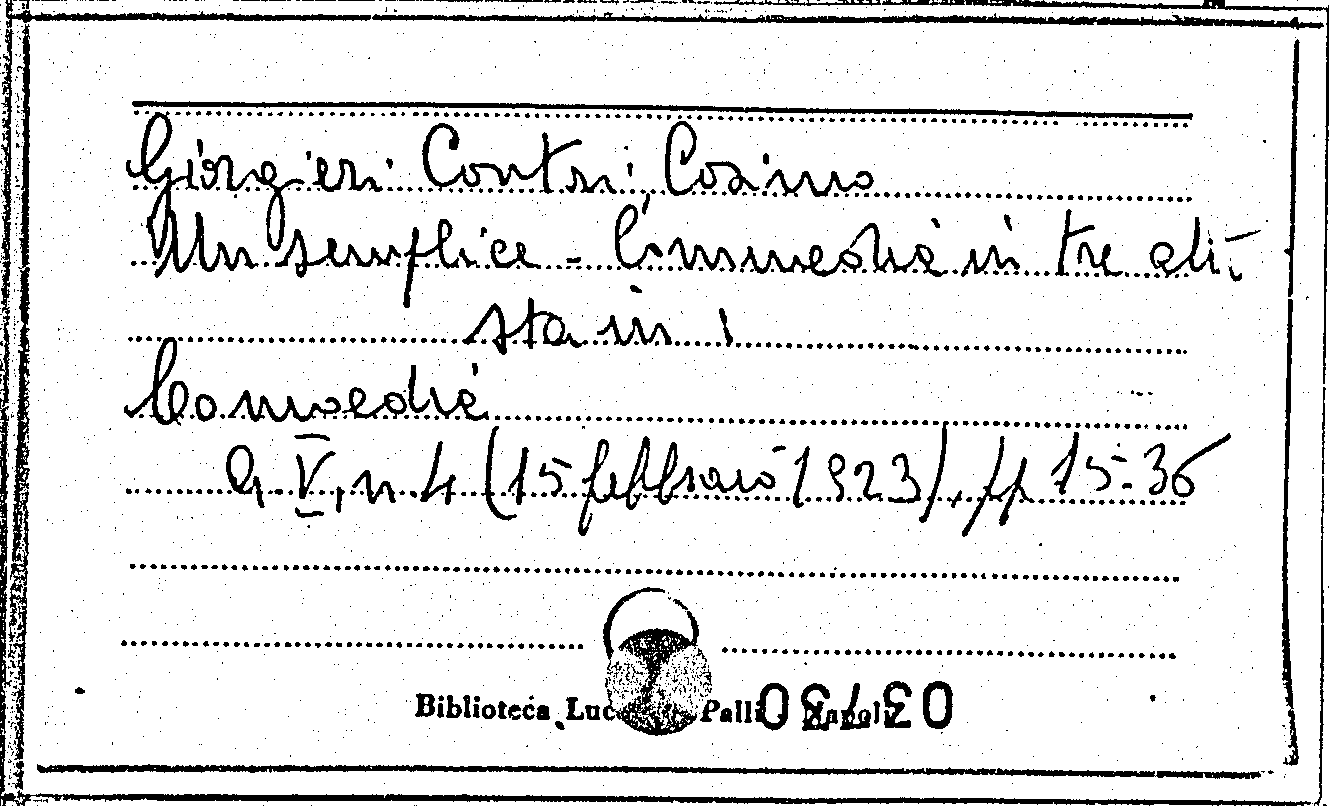 Giorgieri Contri Cosimo
Un semplice - Commedia in tre atti -
sta in
Comoedia
A. V, n. 4 (15 febbraio 1923), pp 15-36
Biblioteca Luc Palli Napoli